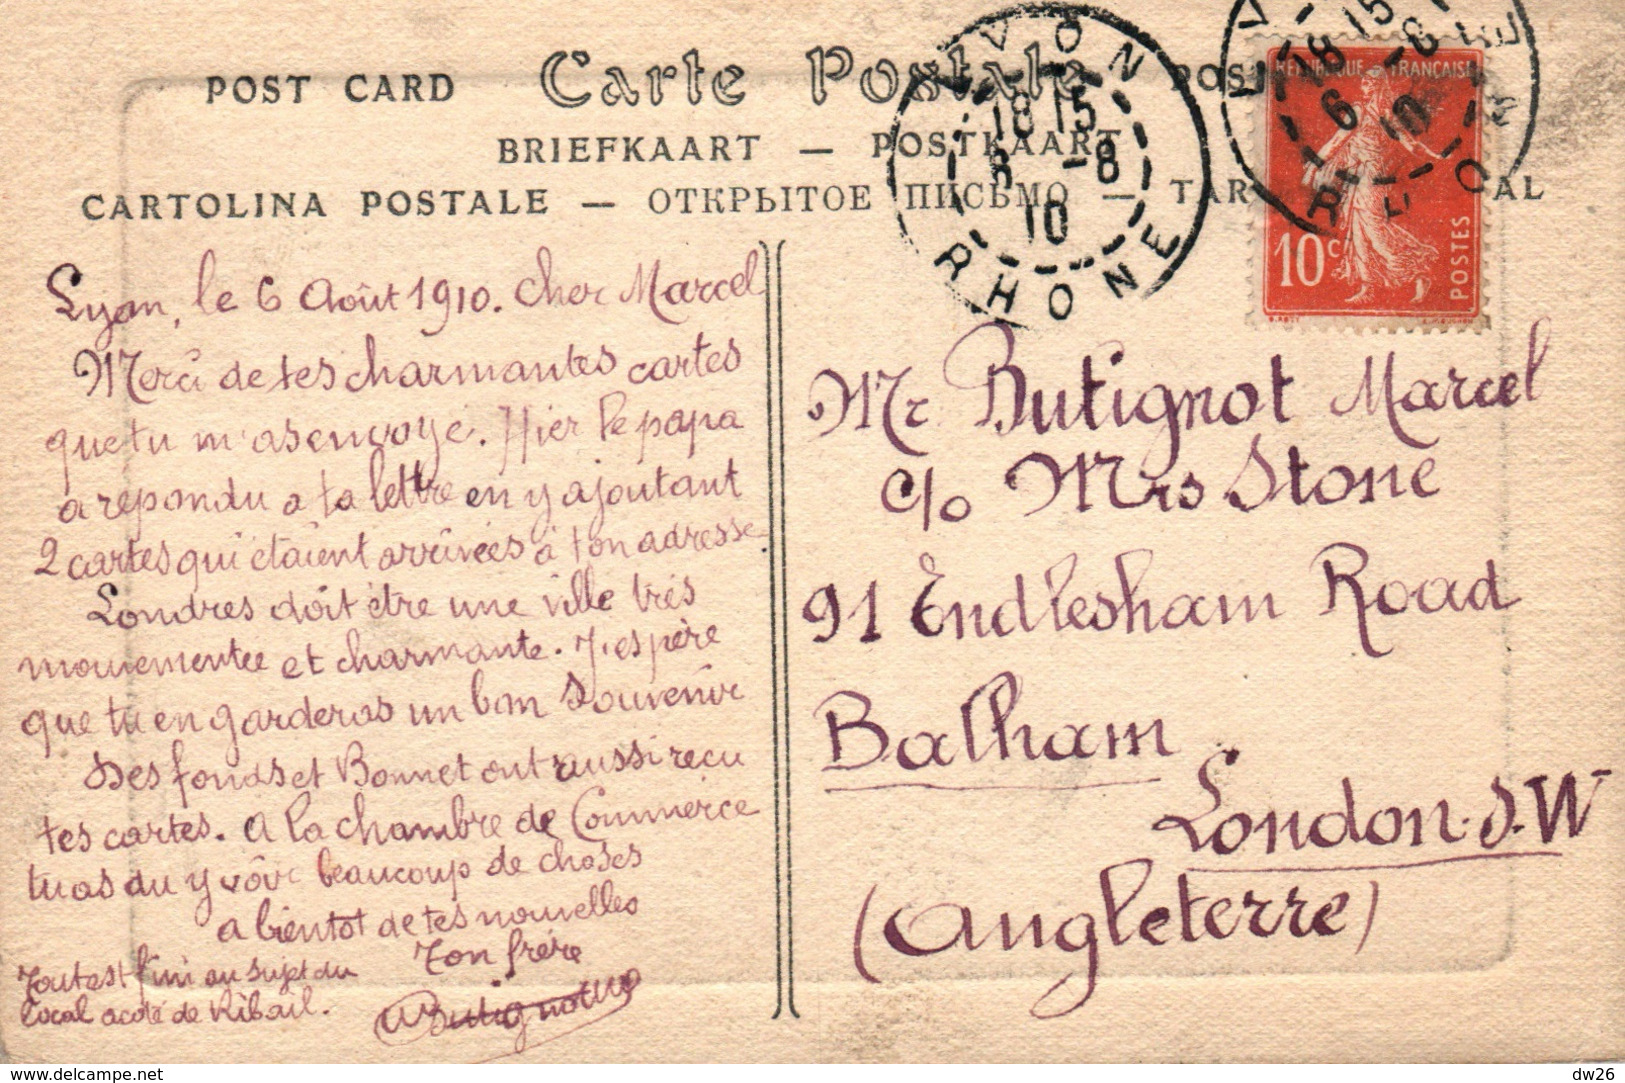 POST CARD Carte Postale POS
BRIEFKAART — POSTKAART
CARTOLINA POSTALE — ОТКРЫТОЕ ПИСЬМО — TAR AL
LYON
18 15
6 -8
10
RHONE
18 15
6 -8
10
REPUBLIQUE FRANÇAISE
10c
POSTES
Lyon, le 6 Août 1910. Cher Marcel
Merci de tes charmantes cartes
que tu m'as envoyé. Hier le papa
a repondu a ta lettre en y ajoutant
2 cartes qui étaient arrivées à ton adresse.
Londres doit être une ville très
mouvementée et charmante. J'espère
que tu en garderas un bon souvenir
Desfonds et Bonnet ont aussi reçu
tes cartes. A la chambre de Commerce
tu as du y voir beaucoup de choses
a bientot de tes nouvelles
Ton frère
Tout est fini au sujet du
local a coté de Ribail.
Butignot
Mr Butignot Marcel
c/o Mrs Stone
91 Endlesham Road
Balham
London. S.W
(Angleterre)
dw26
www.delcampe.net